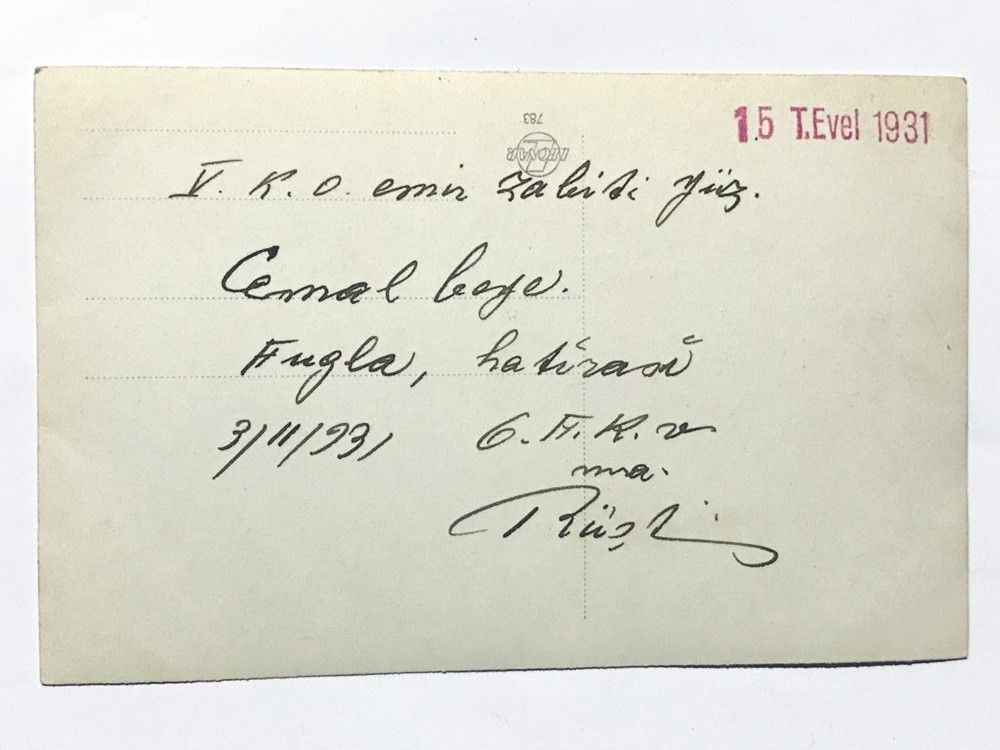 15 T.Evel 1931
783
LEONAR
V. K. O. emir zabiti yüz.
Cemal beye.
hatırası
3/11/931 6. F. K. v
Rüştü